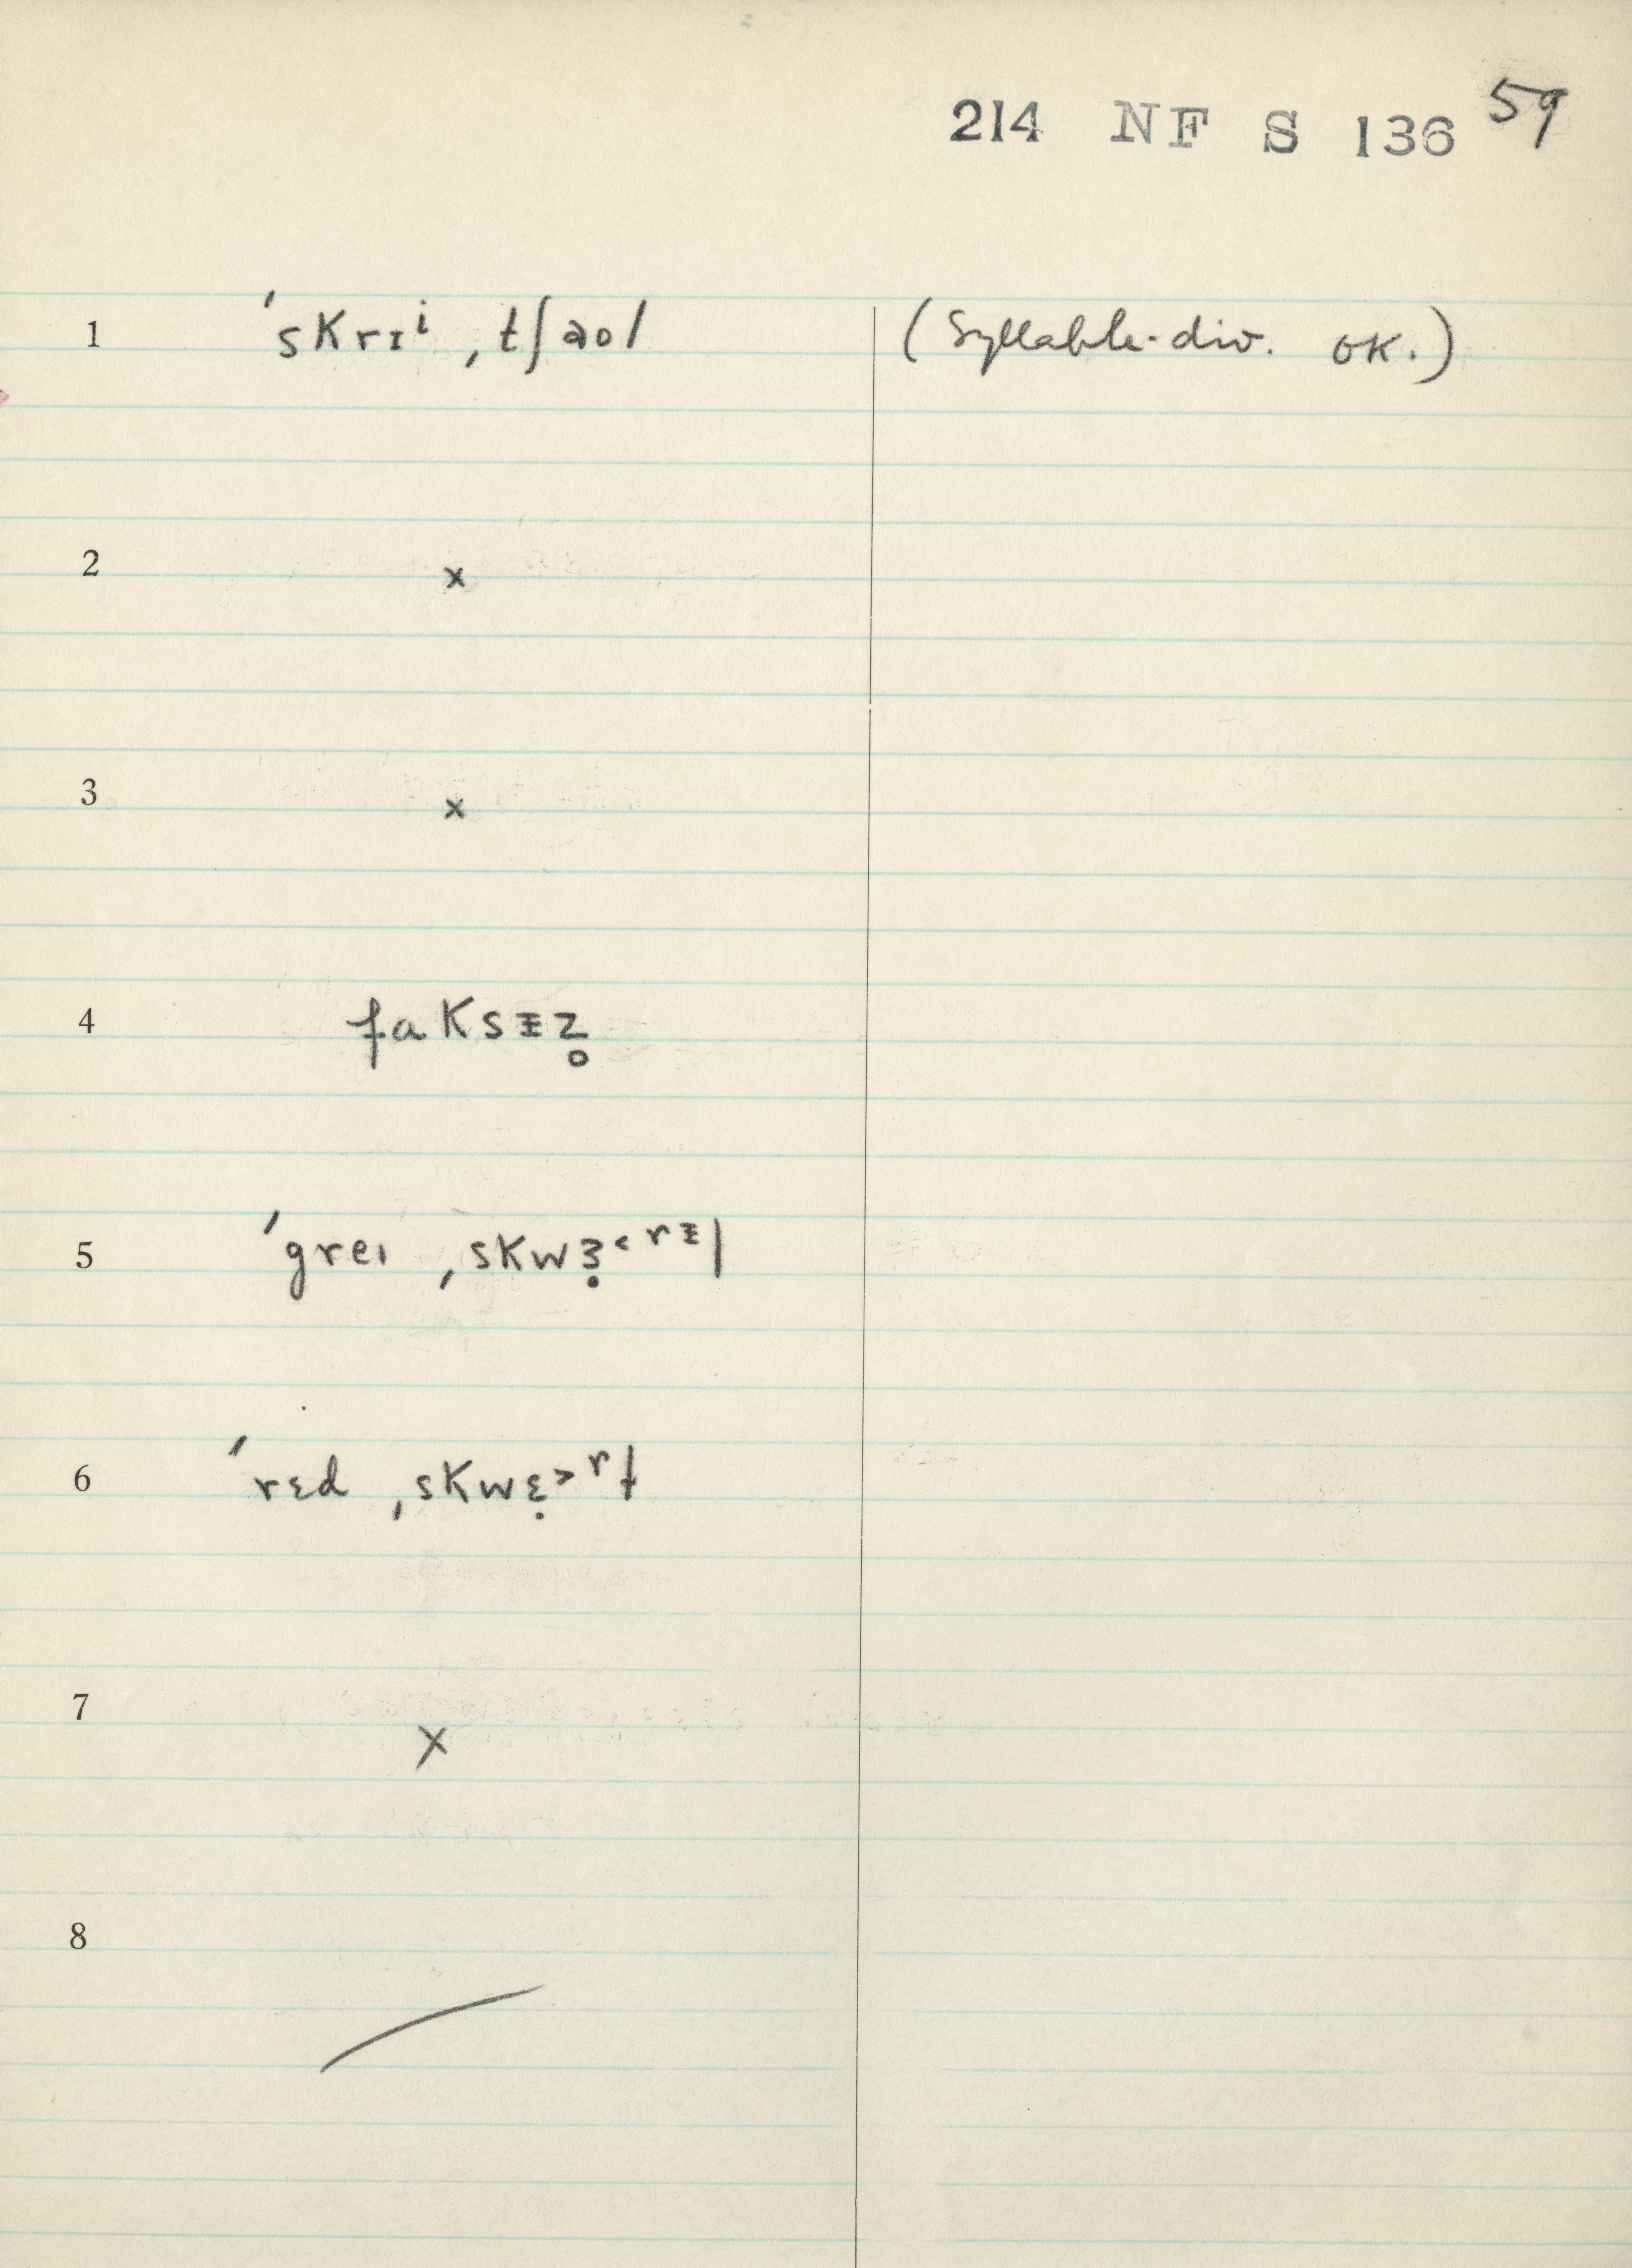 214 NF S 136 59
1 ˈskrɪⁱ ˌtʃaol (Syllable-div. OK.)
2 x
3 x
4 faksᵻz̥
5 ˈgreɪ ˌskwɜ̣˂ʳᵻl
6 ˈrɛd ˌskwɛ̣˃ʳɫ
7 x
8